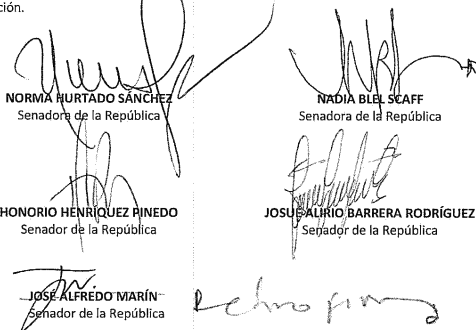 ción.
NORMA HURTADO SÁNCHEZ
Senadora de la República
NADIA BLEL SCAFF
Senadora de la República
HONORIO HENRÍQUEZ PINEDO
Senador de la República
JOSUÉ ALIRIO BARRERA RODRÍGUEZ
Senador de la República
JOSÉ ALFREDO MARÍN
Senador de la República